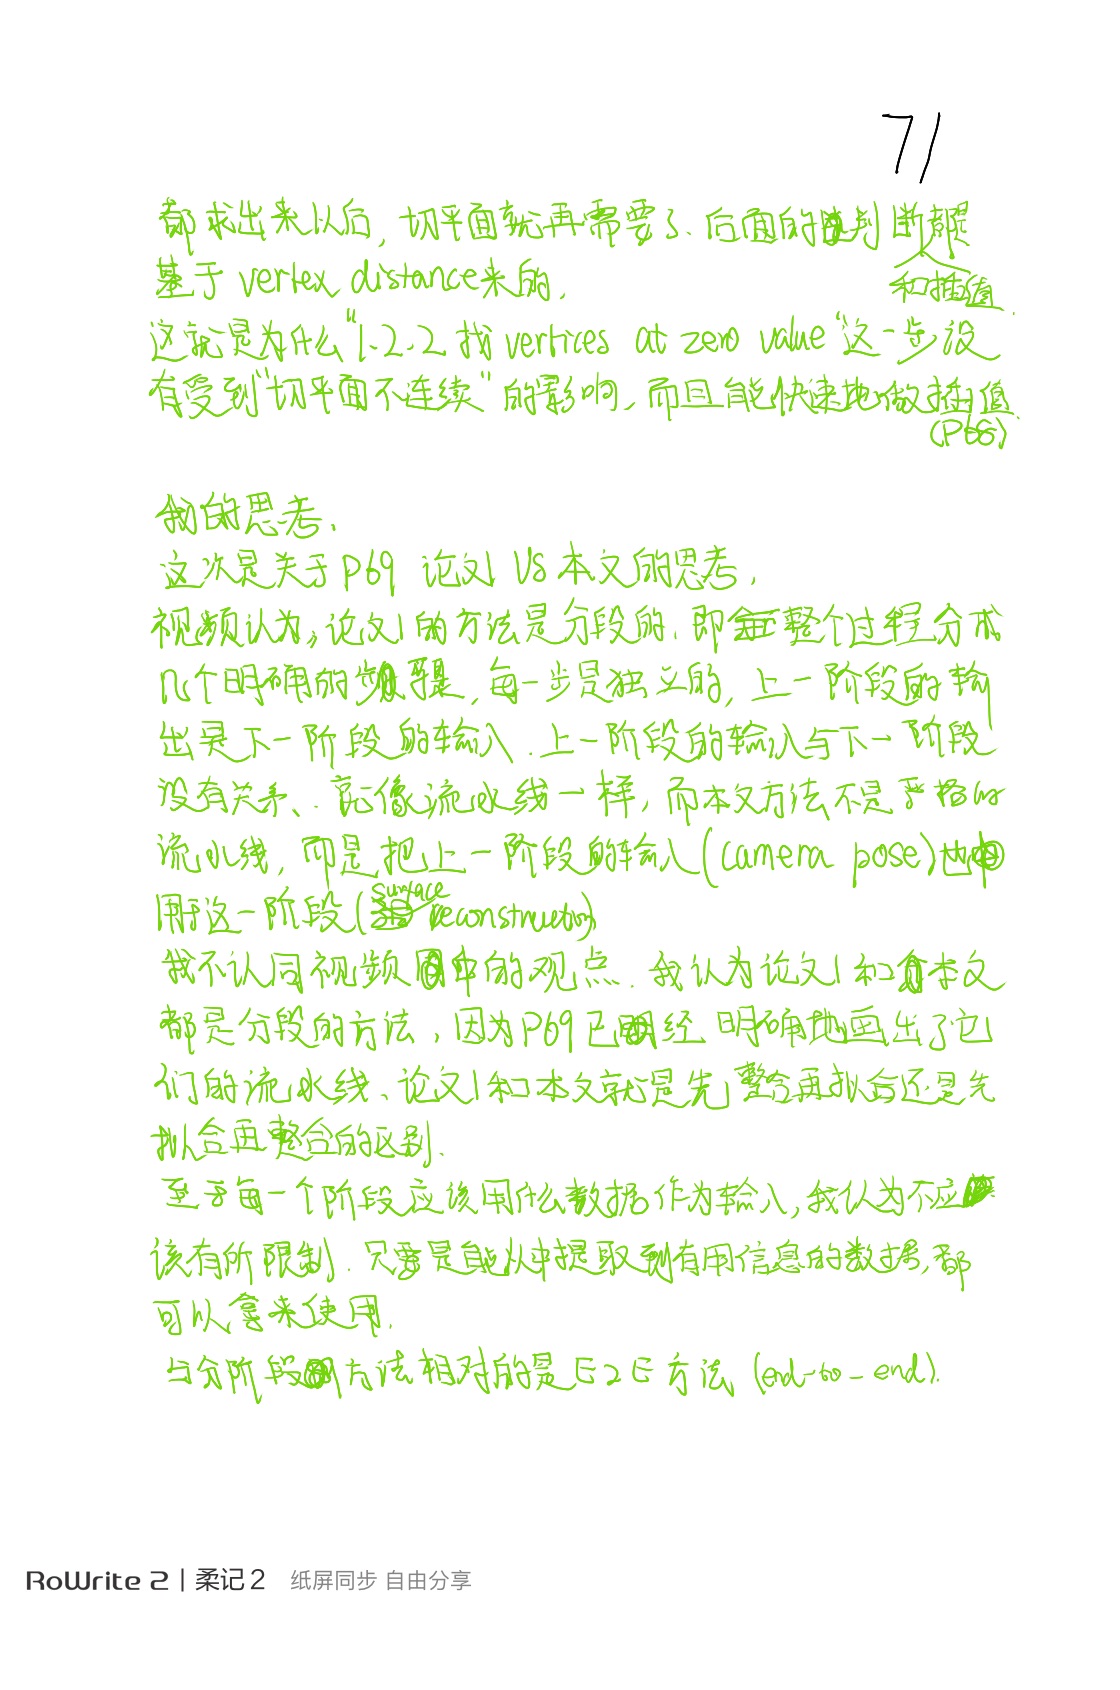 71
都求出来以后, 切平面就再需要了. 后面的判断和插值都是
基于 vertex distance来的,
这就是为什么“1.2.2 找 vertices at zero value”这一步没
有受到“切平面不连续”的影响, 而且能快速地做插值.
(P68)
我的思考.
这次是关于 P69 论文1 VS 本文的思考.
视频认为, 论文1的方法是分段的, 即整个过程分成
几个明确的步骤, 每一步是独立的, 上一阶段的输
出是下一阶段的输入. 上一阶段的输入与下一阶段
没有关系、就像流水线一样, 而本文方法不是严格的
流水线, 而是把上一阶段的输入(camera pose)也
用于这一阶段(surface reconstruction)
我不认同视频中的观点. 我认为论文1和本文
都是分段的方法, 因为P69已经明确地画出了它
们的流水线、论文1和本文就是先整合再拟合还是先
拟合再整合的区别.
至于每一个阶段应该用什么数据作为输入, 我认为不应
该有所限制. 只要是能从中提取到有用信息的数据, 都
可以拿来使用.
与分阶段方法相对的是 E2E 方法 (end-to-end).
RoWrite 2 | 柔记 2 纸屏同步 自由分享